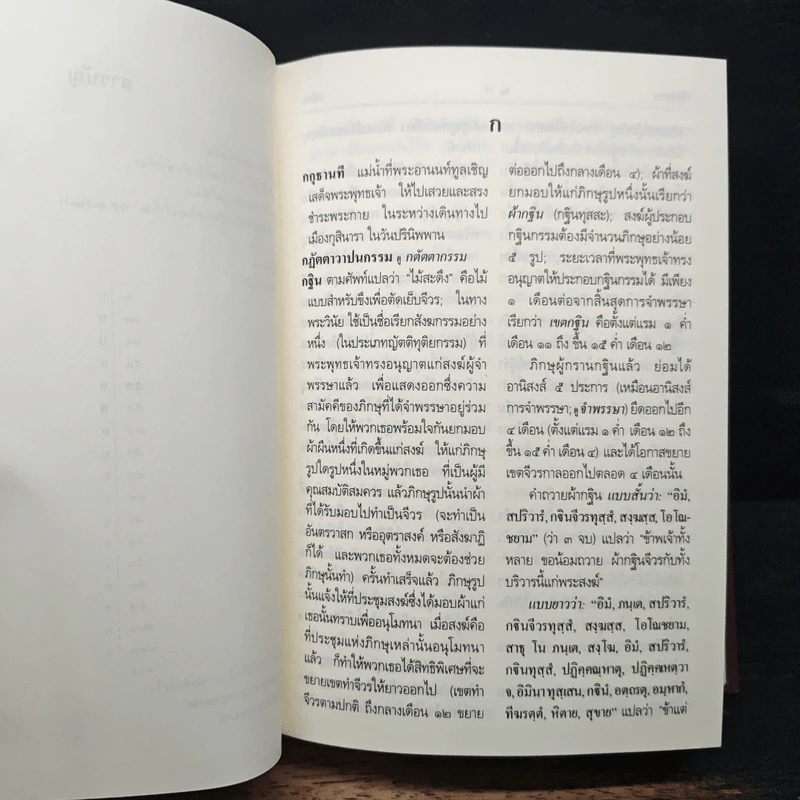 สารบัญ
ก
กกุธานที แม่น้ำที่พระอานนท์ทูลเชิญ
เสด็จพระพุทธเจ้า ให้ไปเสวยและสรง
ชำระพระกาย ในระหว่างเดินทางไป
เมืองกุสินารา ในวันปรินิพพาน
กฏัตตาวาปนกรรม ดู กตัตตากรรม
กฐิน ตามศัพท์แปลว่า “ไม้สะดึง” คือไม้
แบบสำหรับขึงเพื่อตัดเย็บจีวร; ในทาง
พระวินัย ใช้เป็นชื่อเรียกสังฆกรรมอย่าง
หนึ่ง (ในประเภทญัตติทุติยกรรม) ที่
พระพุทธเจ้าทรงอนุญาตแก่สงฆ์ผู้จำ
พรรษาแล้ว เพื่อแสดงออกซึ่งความ
สามัคคีของภิกษุที่ได้จำพรรษาอยู่ร่วม
กัน โดยให้พวกเธอพร้อมใจกันยกมอบ
ผ้าผืนหนึ่งที่เกิดขึ้นแก่สงฆ์ ให้แก่ภิกษุ
รูปใดรูปหนึ่งในหมู่พวกเธอ ที่เป็นผู้มี
คุณสมบัติสมควร แล้วภิกษุรูปนั้นนำผ้า
ที่ได้รับมอบไปทำเป็นจีวร (จะทำเป็น
อันตรวาสก หรืออุตราสงค์ หรือสังฆาฏิ
ก็ได้ และพวกเธอทั้งหมดจะต้องช่วย
ภิกษุนั้นทำ) ครั้นทำเสร็จแล้ว ภิกษุรูป
นั้นแจ้งให้ที่ประชุมสงฆ์ซึ่งได้มอบผ้าแก่
เธอนั้นทราบเพื่ออนุโมทนา เมื่อสงฆ์คือ
ที่ประชุมแห่งภิกษุเหล่านั้นอนุโมทนา
แล้ว ก็ทำให้พวกเธอได้สิทธิพิเศษที่จะ
ขยายเขตทำจีวรให้ยาวออกไป (เขตทำ
จีวรตามปกติ ถึงกลางเดือน ๑๒ ขยาย
ต่อออกไปถึงกลางเดือน ๔); ผ้าที่สงฆ์
ยกมอบให้แก่ภิกษุรูปหนึ่งนั้นเรียกว่า
ผ้ากฐิน (กฐินทุสสะ); สงฆ์ผู้ประกอบ
กฐินกรรมต้องมีจำนวนภิกษุอย่างน้อย
๕ รูป; ระยะเวลาที่พระพุทธเจ้าทรง
อนุญาตให้ประกอบกฐินกรรมได้ มีเพียง
๑ เดือนต่อจากสิ้นสุดการจำพรรษา
เรียกว่า เขตกฐิน คือตั้งแต่แรม ๑ ค่ำ
เดือน ๑๑ ถึง ขึ้น ๑๕ ค่ำ เดือน ๑๒
ภิกษุผู้กรานกฐินแล้ว ย่อมได้
อานิสงส์ ๕ ประการ (เหมือนอานิสงส์
การจำพรรษา; ดู จำพรรษา) ยืดออกไปอีก
๔ เดือน (ตั้งแต่แรม ๑ ค่ำ เดือน ๑๒ ถึง
ขึ้น ๑๕ ค่ำ เดือน ๔) และได้โอกาสขยาย
เขตจีวรกาลออกไปตลอด ๔ เดือนนั้น
คำถวายผ้ากฐิน แบบสั้นว่า: “อิมํ,
สปริวารํ, กฐินจีวรทุสฺสํ, สงฺฆสฺส, โอโณ-
ชยาม” (ว่า ๓ จบ) แปลว่า “ข้าพเจ้าทั้ง
หลาย ขอน้อมถวาย ผ้ากฐินจีวรกับทั้ง
บริวารนี้แก่พระสงฆ์”
แบบยาวว่า: “อิมํ, ภนฺเต, สปริวารํ,
กฐินจีวรทุสฺสํ, สงฺฆสฺส, โอโณชยาม,
สาธุ โน ภนฺเต, สงฺโฆ, อิมํ, สปริวารํ,
กฐินทุสฺสํ, ปฏิคฺคณฺหาตุ, ปฏิคฺคเหตฺวา
จ, อิมินา ทุสฺเสน, กฐินํ, อตฺถรตุ, อมฺหากํ,
ทีฆรตฺตํ, หิตาย, สุขาย” แปลว่า “ข้าแต่